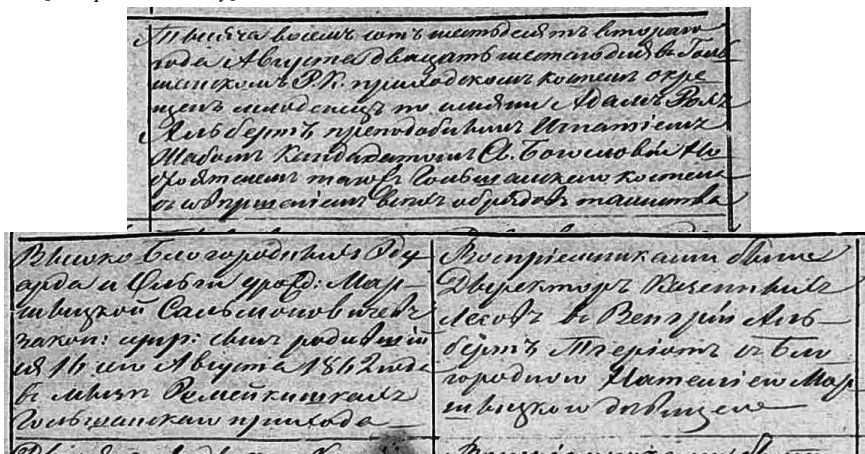 Тысяча восемь сотъ шестьдесятъ втораго
года Августа двацать шестагодня въ Голь
шанскомъ Р.К. приходскомъ костелѣ окре
щенъ младенецъ по имени Адамъ
Альбертъ преподобнымъ Игнатіемъ
Шабомъ Кандидатомъ С. Богословія На
стоятелемъ тогожъ Гольшанскаго костела
съ совершеніемъ всѣхъ обрядовъ таинства
Высоко Благородныхъ Эду
арда и Ольги урожд: Мар
швицкой Сальмоновичевъ
закон: супр: сынъ родившій
ся 16 сего Августа 1862 года
въ имѣн Ремейкишкахъ
Гольшанскаго прихода
Воспріемниками были
Дыректоръ Казенныхъ
лесовъ в Венгріи Аль
бертъ Тгеріотъ съ Бла
городною Наталіею Мар
швицкою дѣвицею